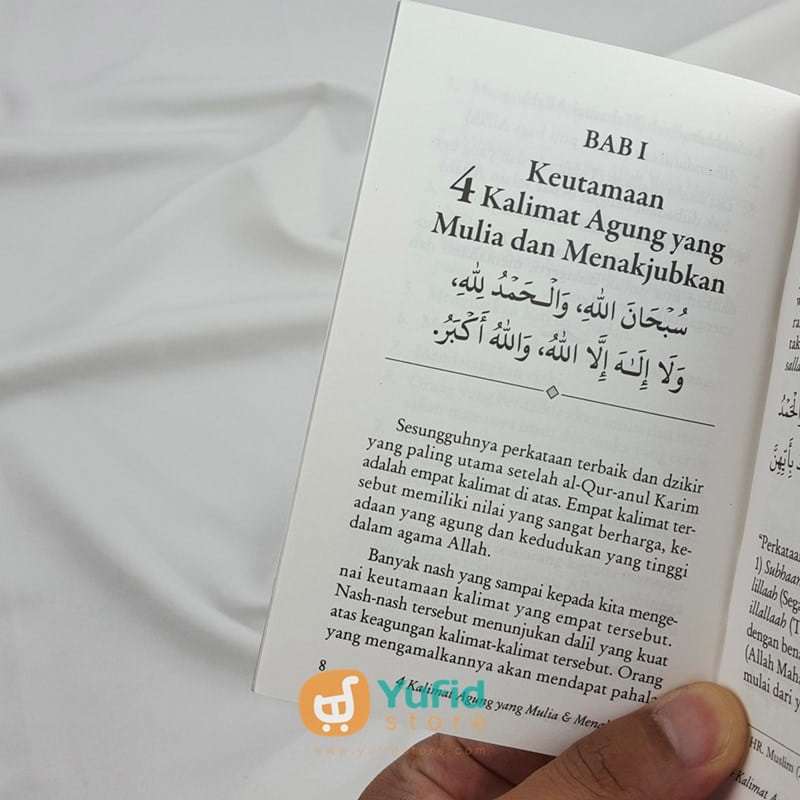 BAB I
Keutamaan
4 Kalimat Agung yang
Mulia dan Menakjubkan
سُبْحَانَ اللهِ، وَالْحَمْدُ لِلهِ،
وَلَا إِلَـٰهَ إِلَّا اللهُ، وَاللهُ أَكْبَرُ.
Sesungguhnya perkataan terbaik dan dzikir
yang paling utama setelah al-Qur-anul Karim
adalah empat kalimat di atas. Empat kalimat ter-
sebut memiliki nilai yang sangat berharga, ke-
adaan yang agung dan kedudukan yang tinggi
dalam agama Allah.
Banyak nash yang sampai kepada kita menge-
nai keutamaan kalimat yang empat tersebut.
Nash-nash tersebut menunjukan dalil yang kuat
atas keagungan kalimat-kalimat tersebut. Orang
yang mengamalkannya akan mendapat
8
4 Kalimat Agung yang Mulia &
Yufid
store
"Perkataan
1)
lillaah
illallaah
dengan
(Allah
mulai dari
HR. Muslim